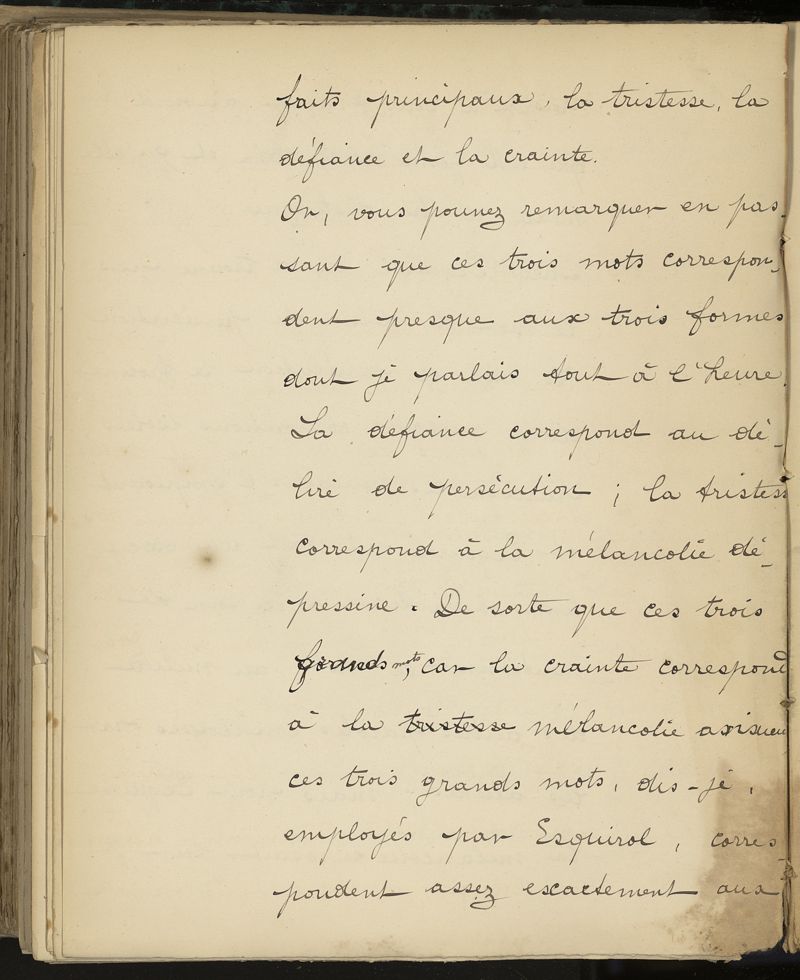 faits principaux, la tristesse, la
défiance et la crainte.
Or, vous pouvez remarquer en pas-
sant que ces trois mots correspon-
dent presque aux trois formes
dont je parlais tout à l'heure.
La défiance correspond au dé-
lire de persécution ; la tristess
correspond à la mélancolie dé-
pressive. De sorte que ces trois
grands mots, car la crainte correspond
à la tristesse mélancolie
ces trois grands mots, dis-je,
employés par Esquirol, corres-
pondent assez exactement aux